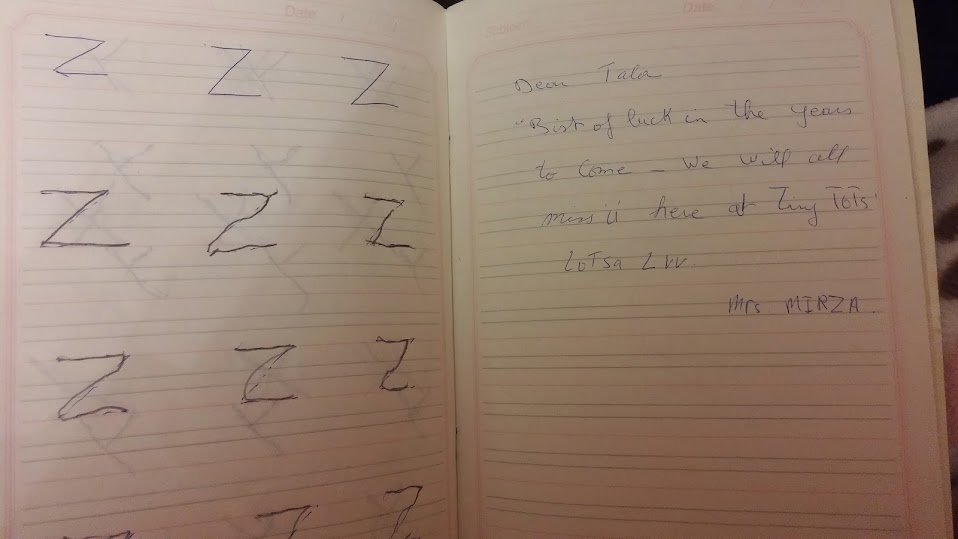 Date / /
Z Z Z
Z Z Z
Z Z Z
Z Z
Subject Date
Dear Tala
"Best of luck in the years
to come - We will all
miss U here at Tiny TOTS"
LOTSa LVV
Mrs. MIRZA.